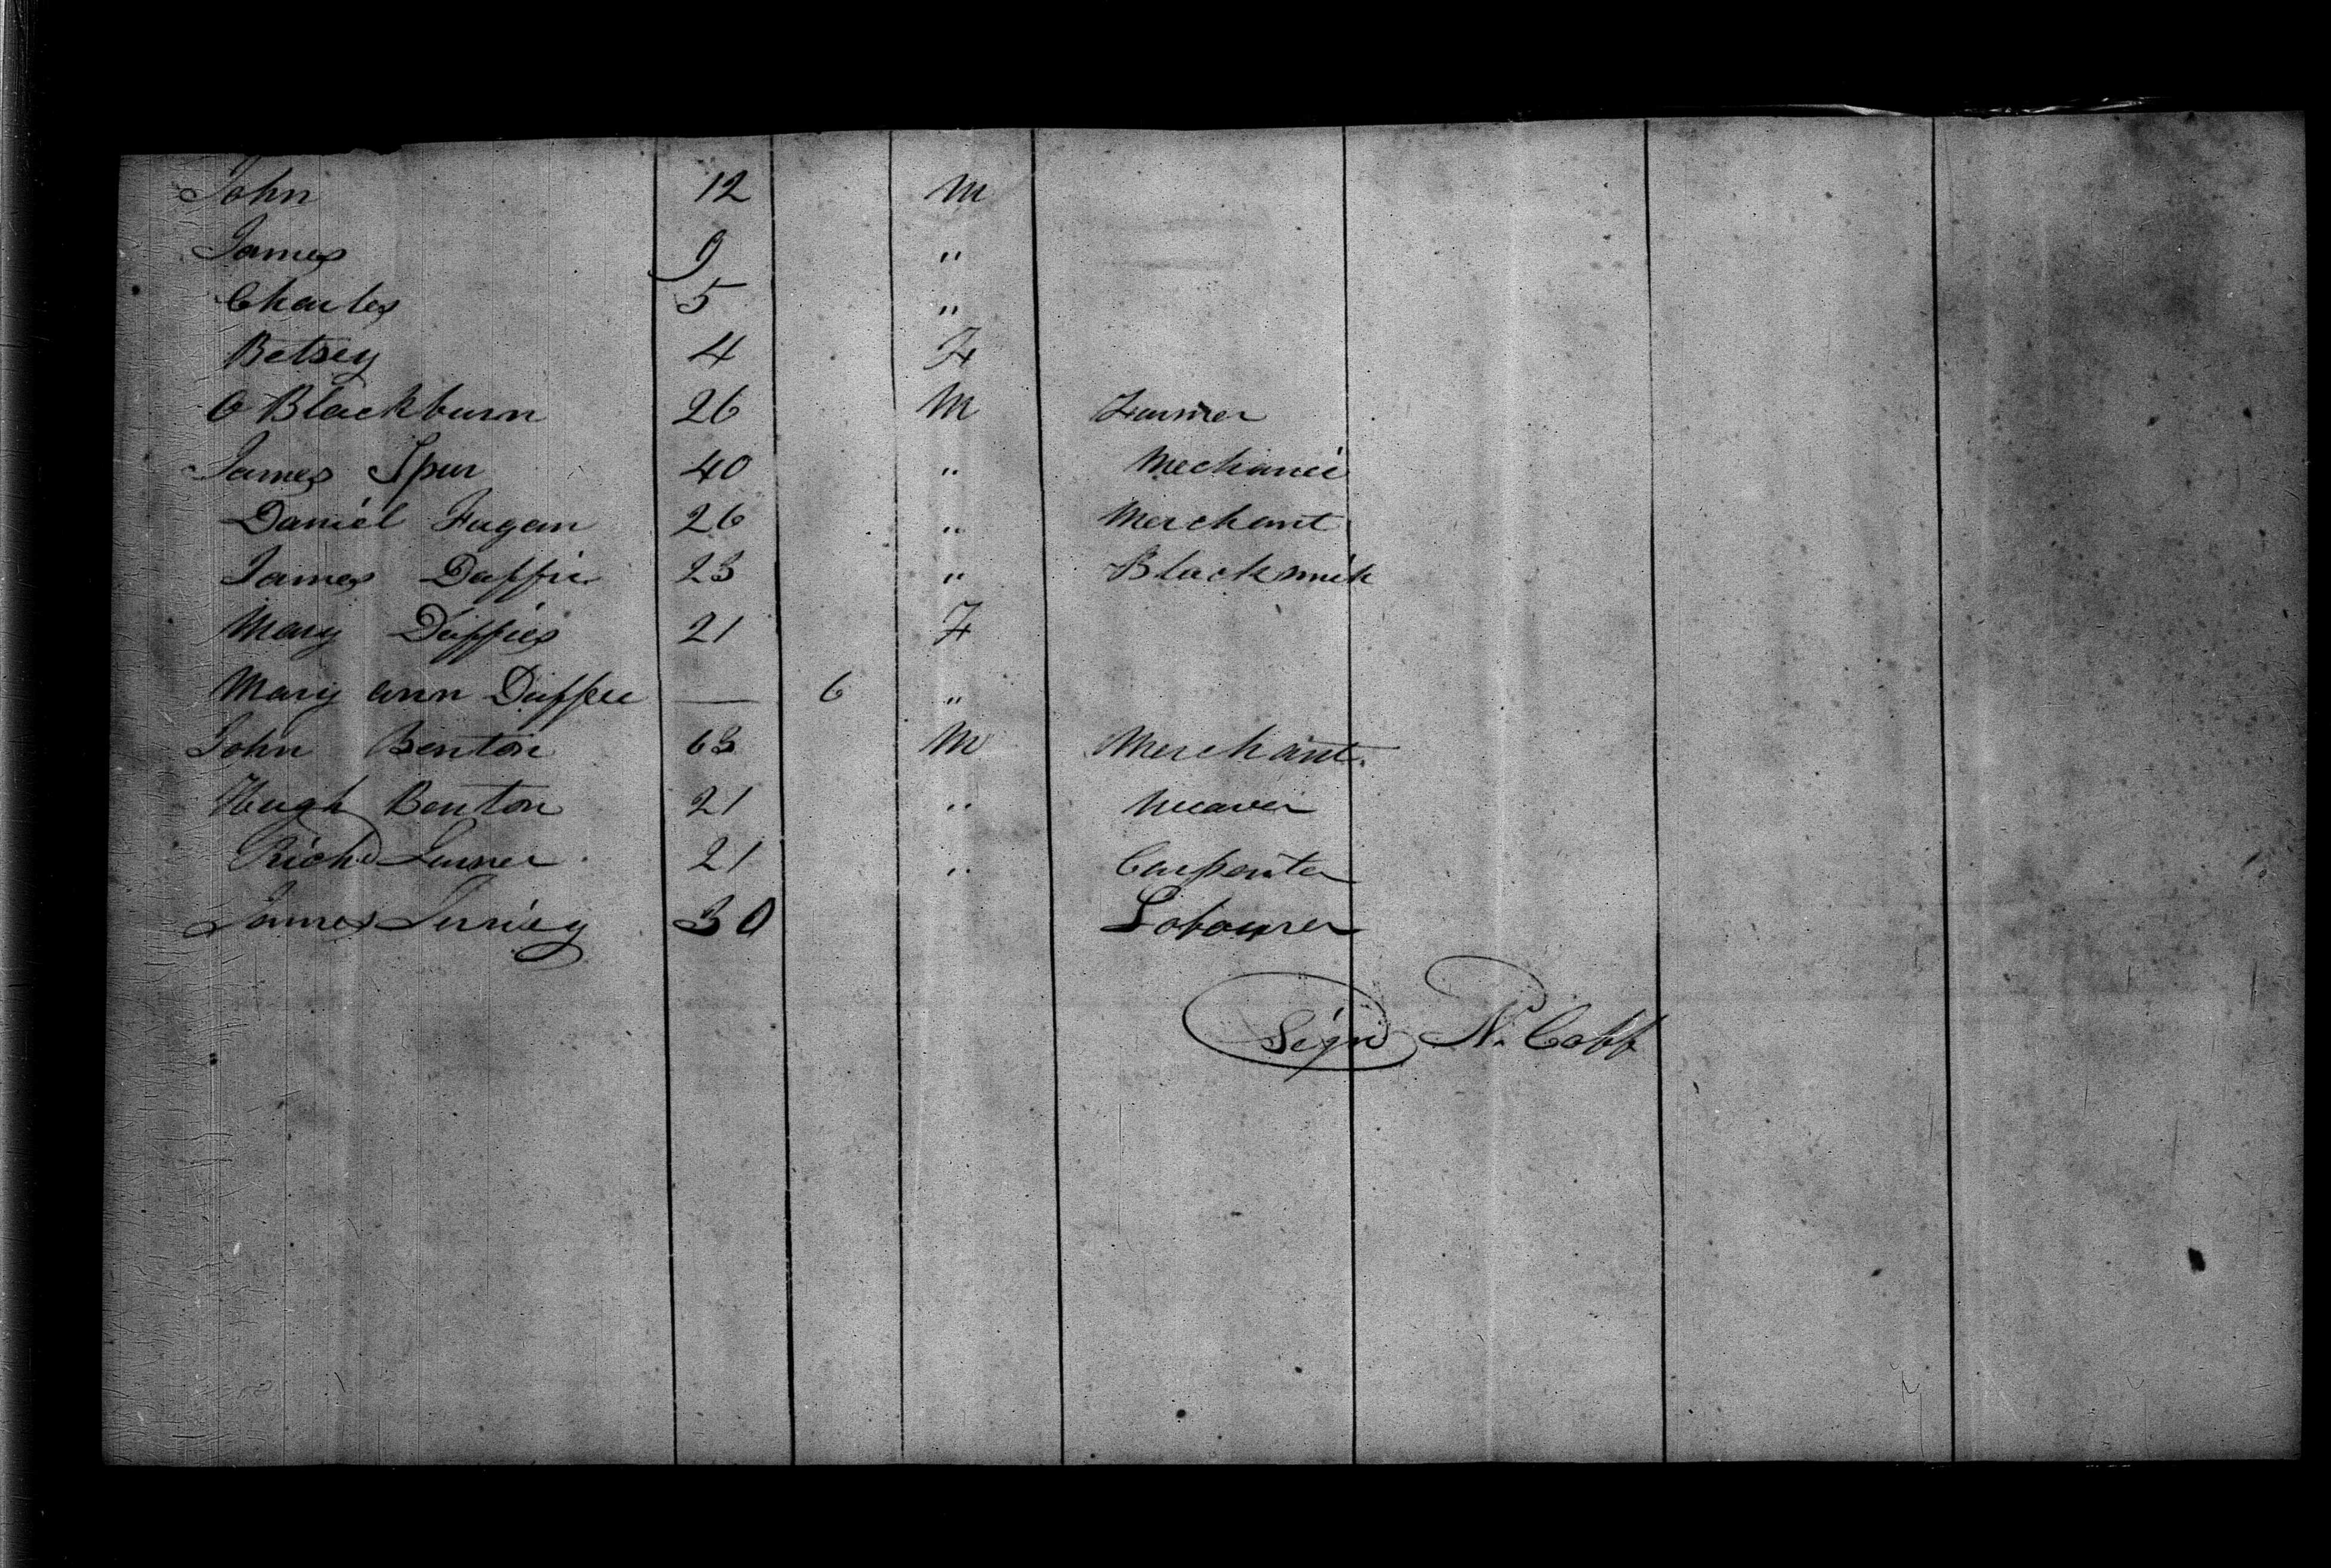 John 12 M
James 9 "
Charles 5 "
Betsey 4 F
O Blackburn 26 M Farmer
James Spur 40 " Mechanic
Daniel Fagan 26 " Merchant
James Duffie 23 " Blacksmith
Mary Duffies 21 F
Mary ann Duffee — 6 "
John Benton 63 M Merchant
Hugh Benton 21 " Weaver
Richd 21 " Carpenter
James 30 Labourer
Signd N. Cobb